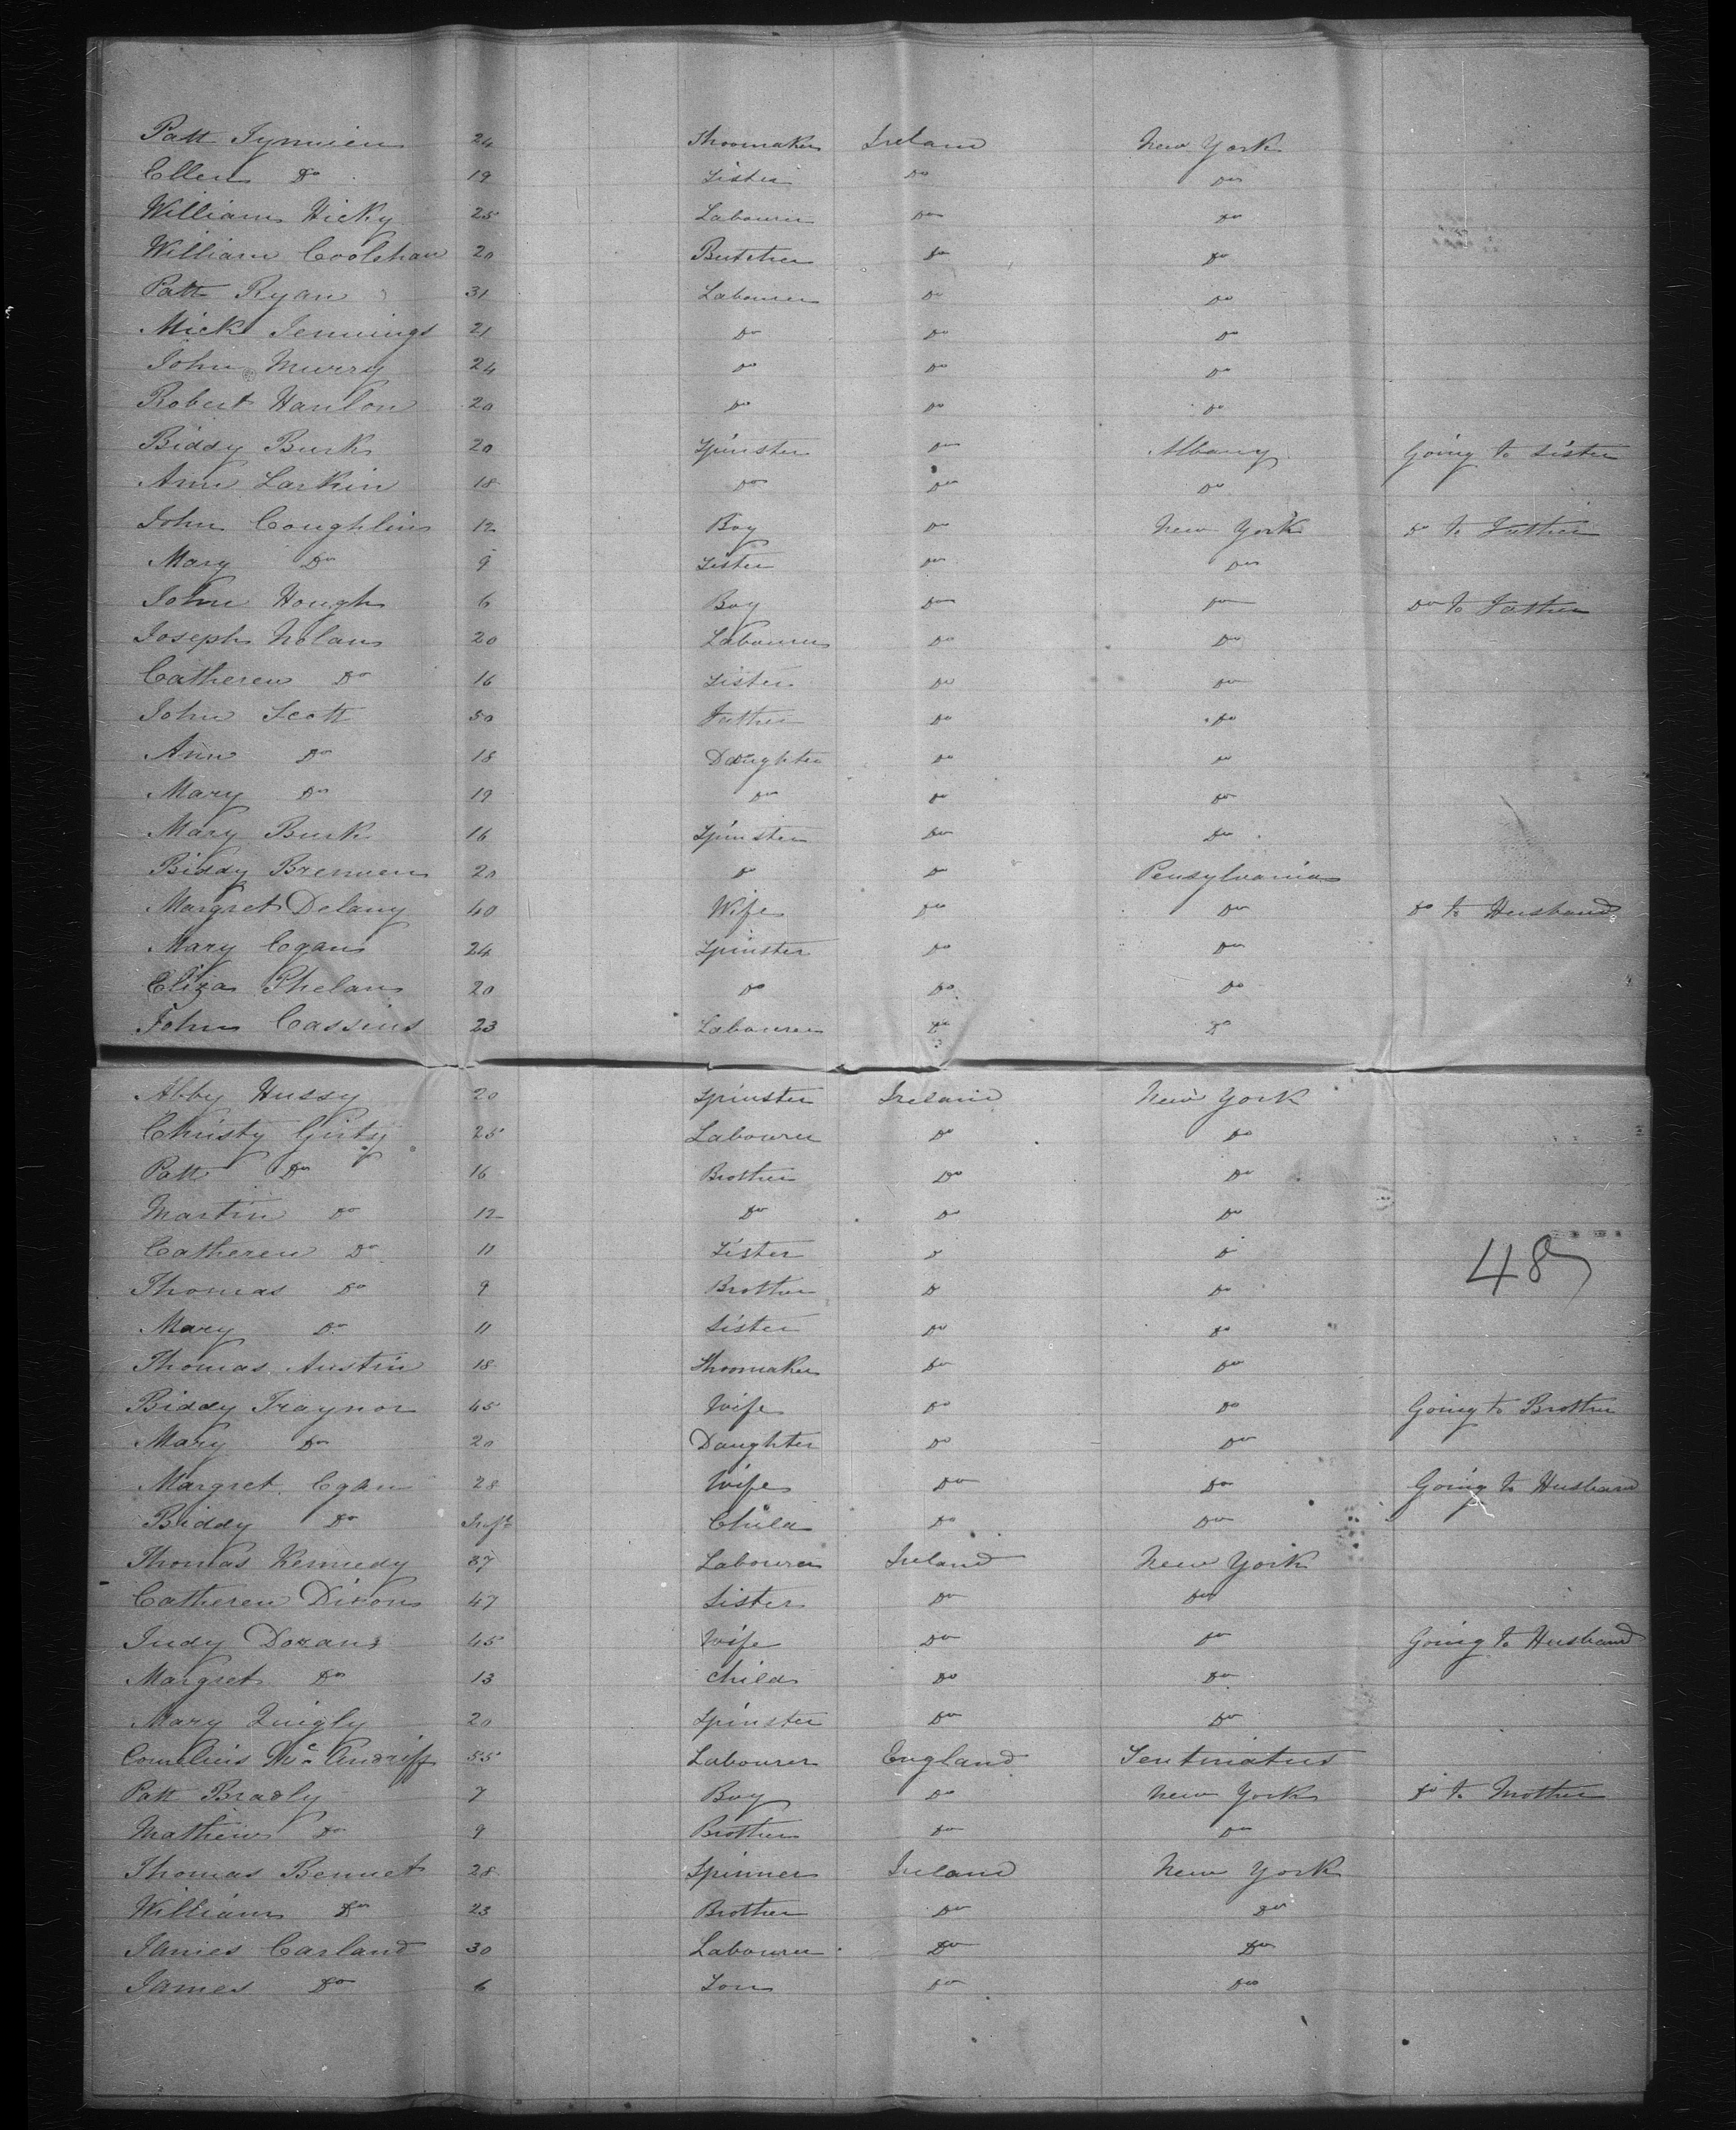 Patt 24 Shoomaker Ireland New York
Ellen Do 19 Sister Do Do
William Hicky 25 Labourer Do Do
William Coolehan 20 Butcher Do Do
Patt Ryan 31 Labourer Do Do
Mick Jennings 21 Do Do Do
John Murry 24 Do Do Do
Robert Hanlon 20 Do Do Do
Biddy Burk 20 Spinster Do Albany Going to Sister
Ann Larkin 18 Do Do Do
John Coughlin 12 Boy Do New York Do to Father
Mary Do 9 Sister Do Do
John Hough 6 Boy Do Do Do to Father
Joseph Nolan 20 Labourer Do Do
Catheren Do 16 Sister Do Do
John Scott 50 Father Do Do
Ann Do 18 Daughter Do Do
Mary Do 19 Do Do Do
Mary Burk 16 Spinster Do Do
Biddy Brennen 20 Do Do Pensylvania
Margret Delany 40 Wife Do Do Do to Husband
Mary Egan 24 Spinster Do Do
Eliza Phelan 20 Do Do Do
John Cassins 23 Labourer Do Do
Abby Hussy 20 Spinster Ireland New York
Christy Girty 25 Labourer Do Do
Patt Do 16 Brother Do Do
Martin Do 12 Do Do Do
Catheren Do 11 Sister Do Do
48
Thomas Do 9 Brother Do Do
Mary Do 11 Sister Do Do
Thomas Austin 18 Shoomaker Do Do
Biddy Traynor 45 Wife Do Do Going to Brother
Mary Do 20 Daughter Do Do
Margret Egan 28 Wife Do Do Going to Husband
Biddy Do Inft Child Do Do
Thomas Kennedy 37 Labourer Ireland New York
Catheren Dixon 47 Sister Do Do
Judy Doran 45 Wife Do Do Going to Husband
Margret Do 13 Child Do Do
Mary Quigly 20 Spinster Do Do
Cornelius 55 Labourer England
Patt Bradly 7 Boy Do New York Do to Mother
Mathew Do 9 Brother Do Do
Thomas Bennet 28 Spinner Ireland New York
William Do 23 Brother Do Do
James Carland 30 Labourer Do Do
James Do 6 Son Do Do